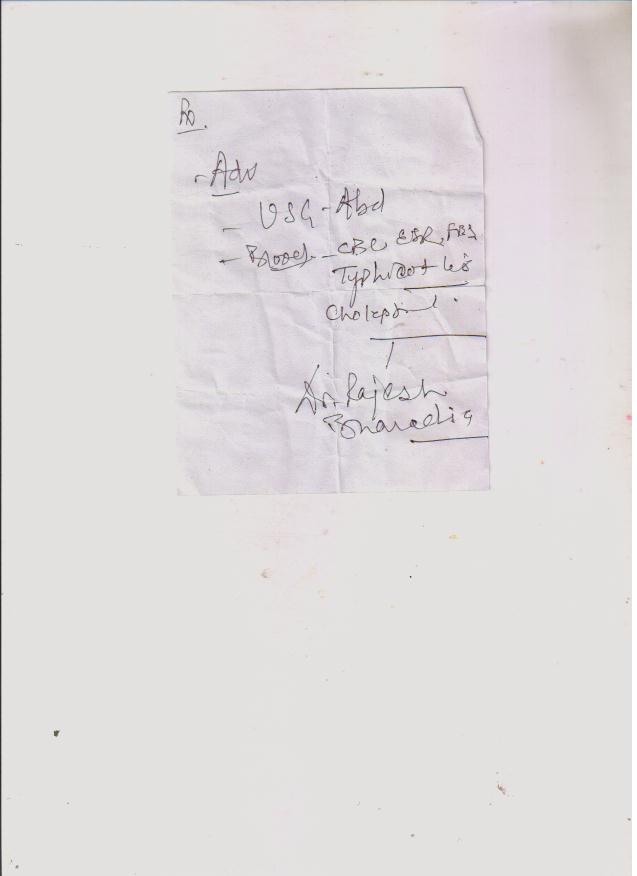 Rx.
- Adv
- USG - Abd
- Blood - CBC, ESR, FBS
Typhidot
Dr. Rajesh
Bharadia